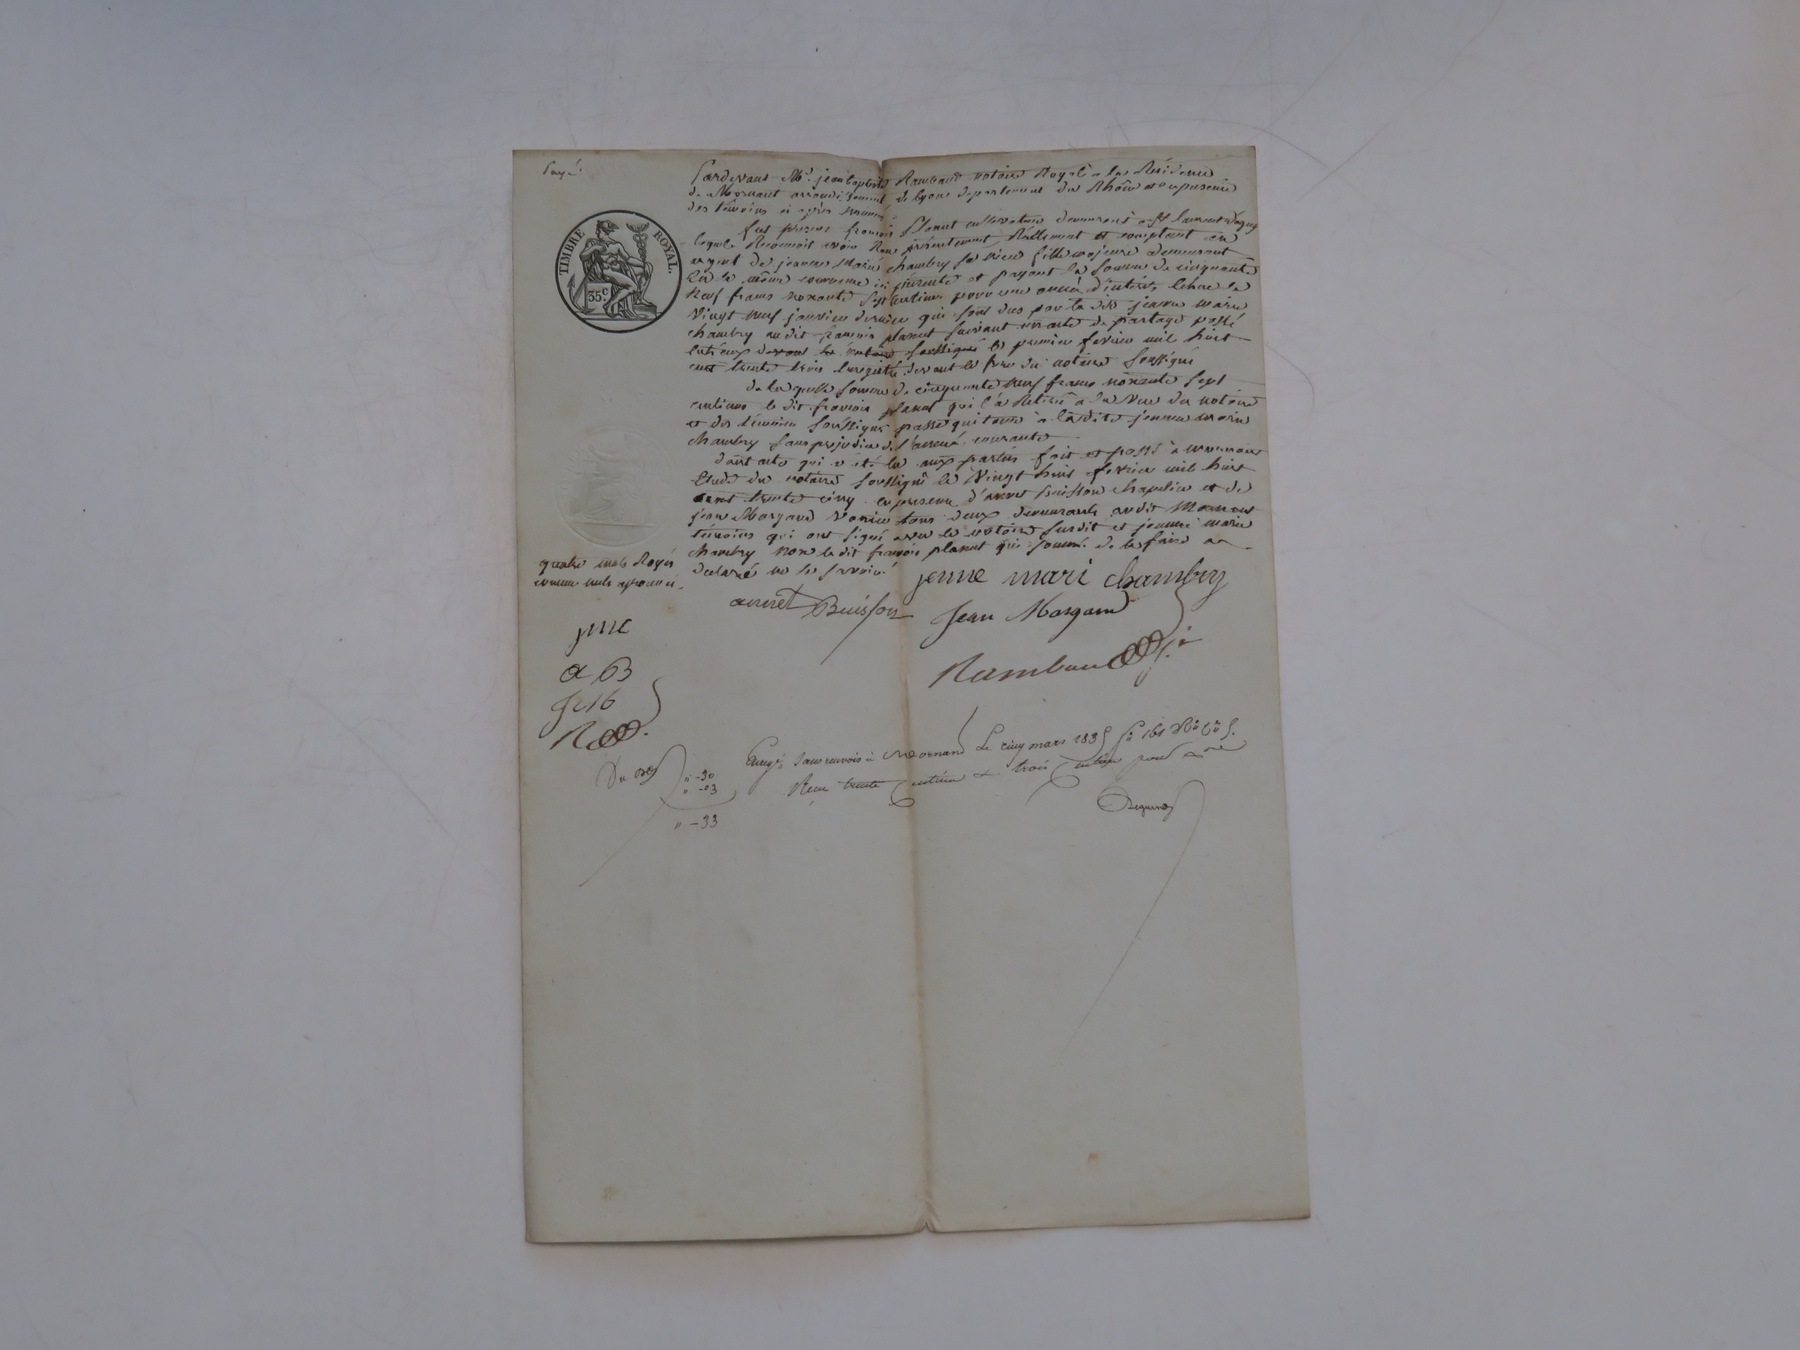 Pardevant Me. jean baptiste Rambaud notaire Royal a la Résidence
de Mornant arrondissement de lyon departement du Rhône et en presence
des témoins ci après nommés
fut present francois planut cultivateur demeurant a st laurent d'agny
lequel Reconnoit avoir Reçu présentement Réellement et comptant en
argent de jeanne Marie chambry sa niece fille majeure demeurant
en la même commune ici présente et payant la somme de cinquante
Neuf francs nonante Sept centimes pour une année d'intérêt échue le
Vingt neuf janvier dernier qui sont dus par la dite jeanne marie
chambry au dit francois planut suivant un acte de partage passé
entr'eux devant le notaire soussigné le premier fevrier mil huit
cent trente trois Enregistré devant le dit notaire soussigné
de la quelle somme de cinquante neuf francs nonante sept
centimes le dit francois planut qui l'a Retirée a la Vue du notaire
et des témoins soussignés passe quittance à la dite jeanne marie
chambry sans prejudice de l'année courante.
dont acte qui a été lu aux parties fait et passé à mornant
Etude du notaire soussigné le Vingt huit fevrier mil huit
cent trente cinq en presence d'annet buisson chapelier et de
jean Margand tous deux demeurants audit Mornant
témoins qui ont signé avec le notaire susdit et jeanne marie
chambry non le dit francois planut qui sommé de le faire a
declaré ne le savoir.
quatre mots Rayés
comme nuls approuvés.
jenne mari chambry
annet Buisson
Jean Margand
jmc
a B
Rambaud
R
Enregé. sans renvois à Mornand le cinq mars 1835 fo 161
Recu trente centimes & trois centimes pour
" -30
" -03
" -33